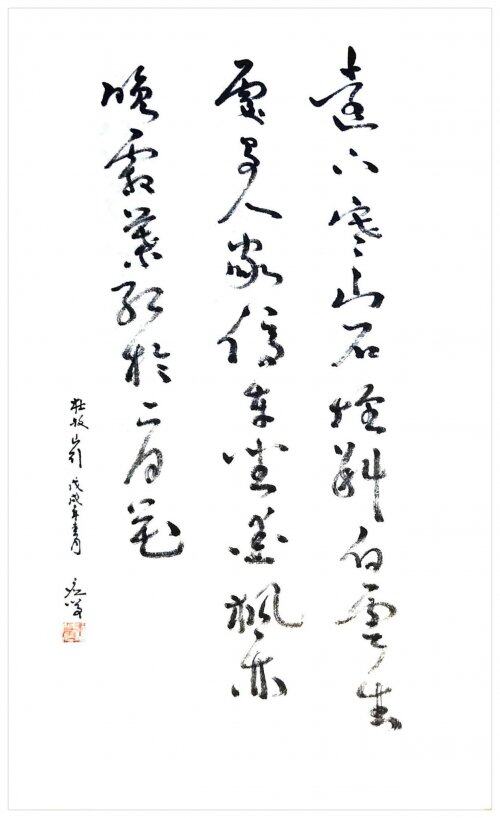 遠上寒山石徑斜白雲生
處有人家停車坐愛楓林
晚霜葉紅於二月花
杜牧山行 戊戌年月